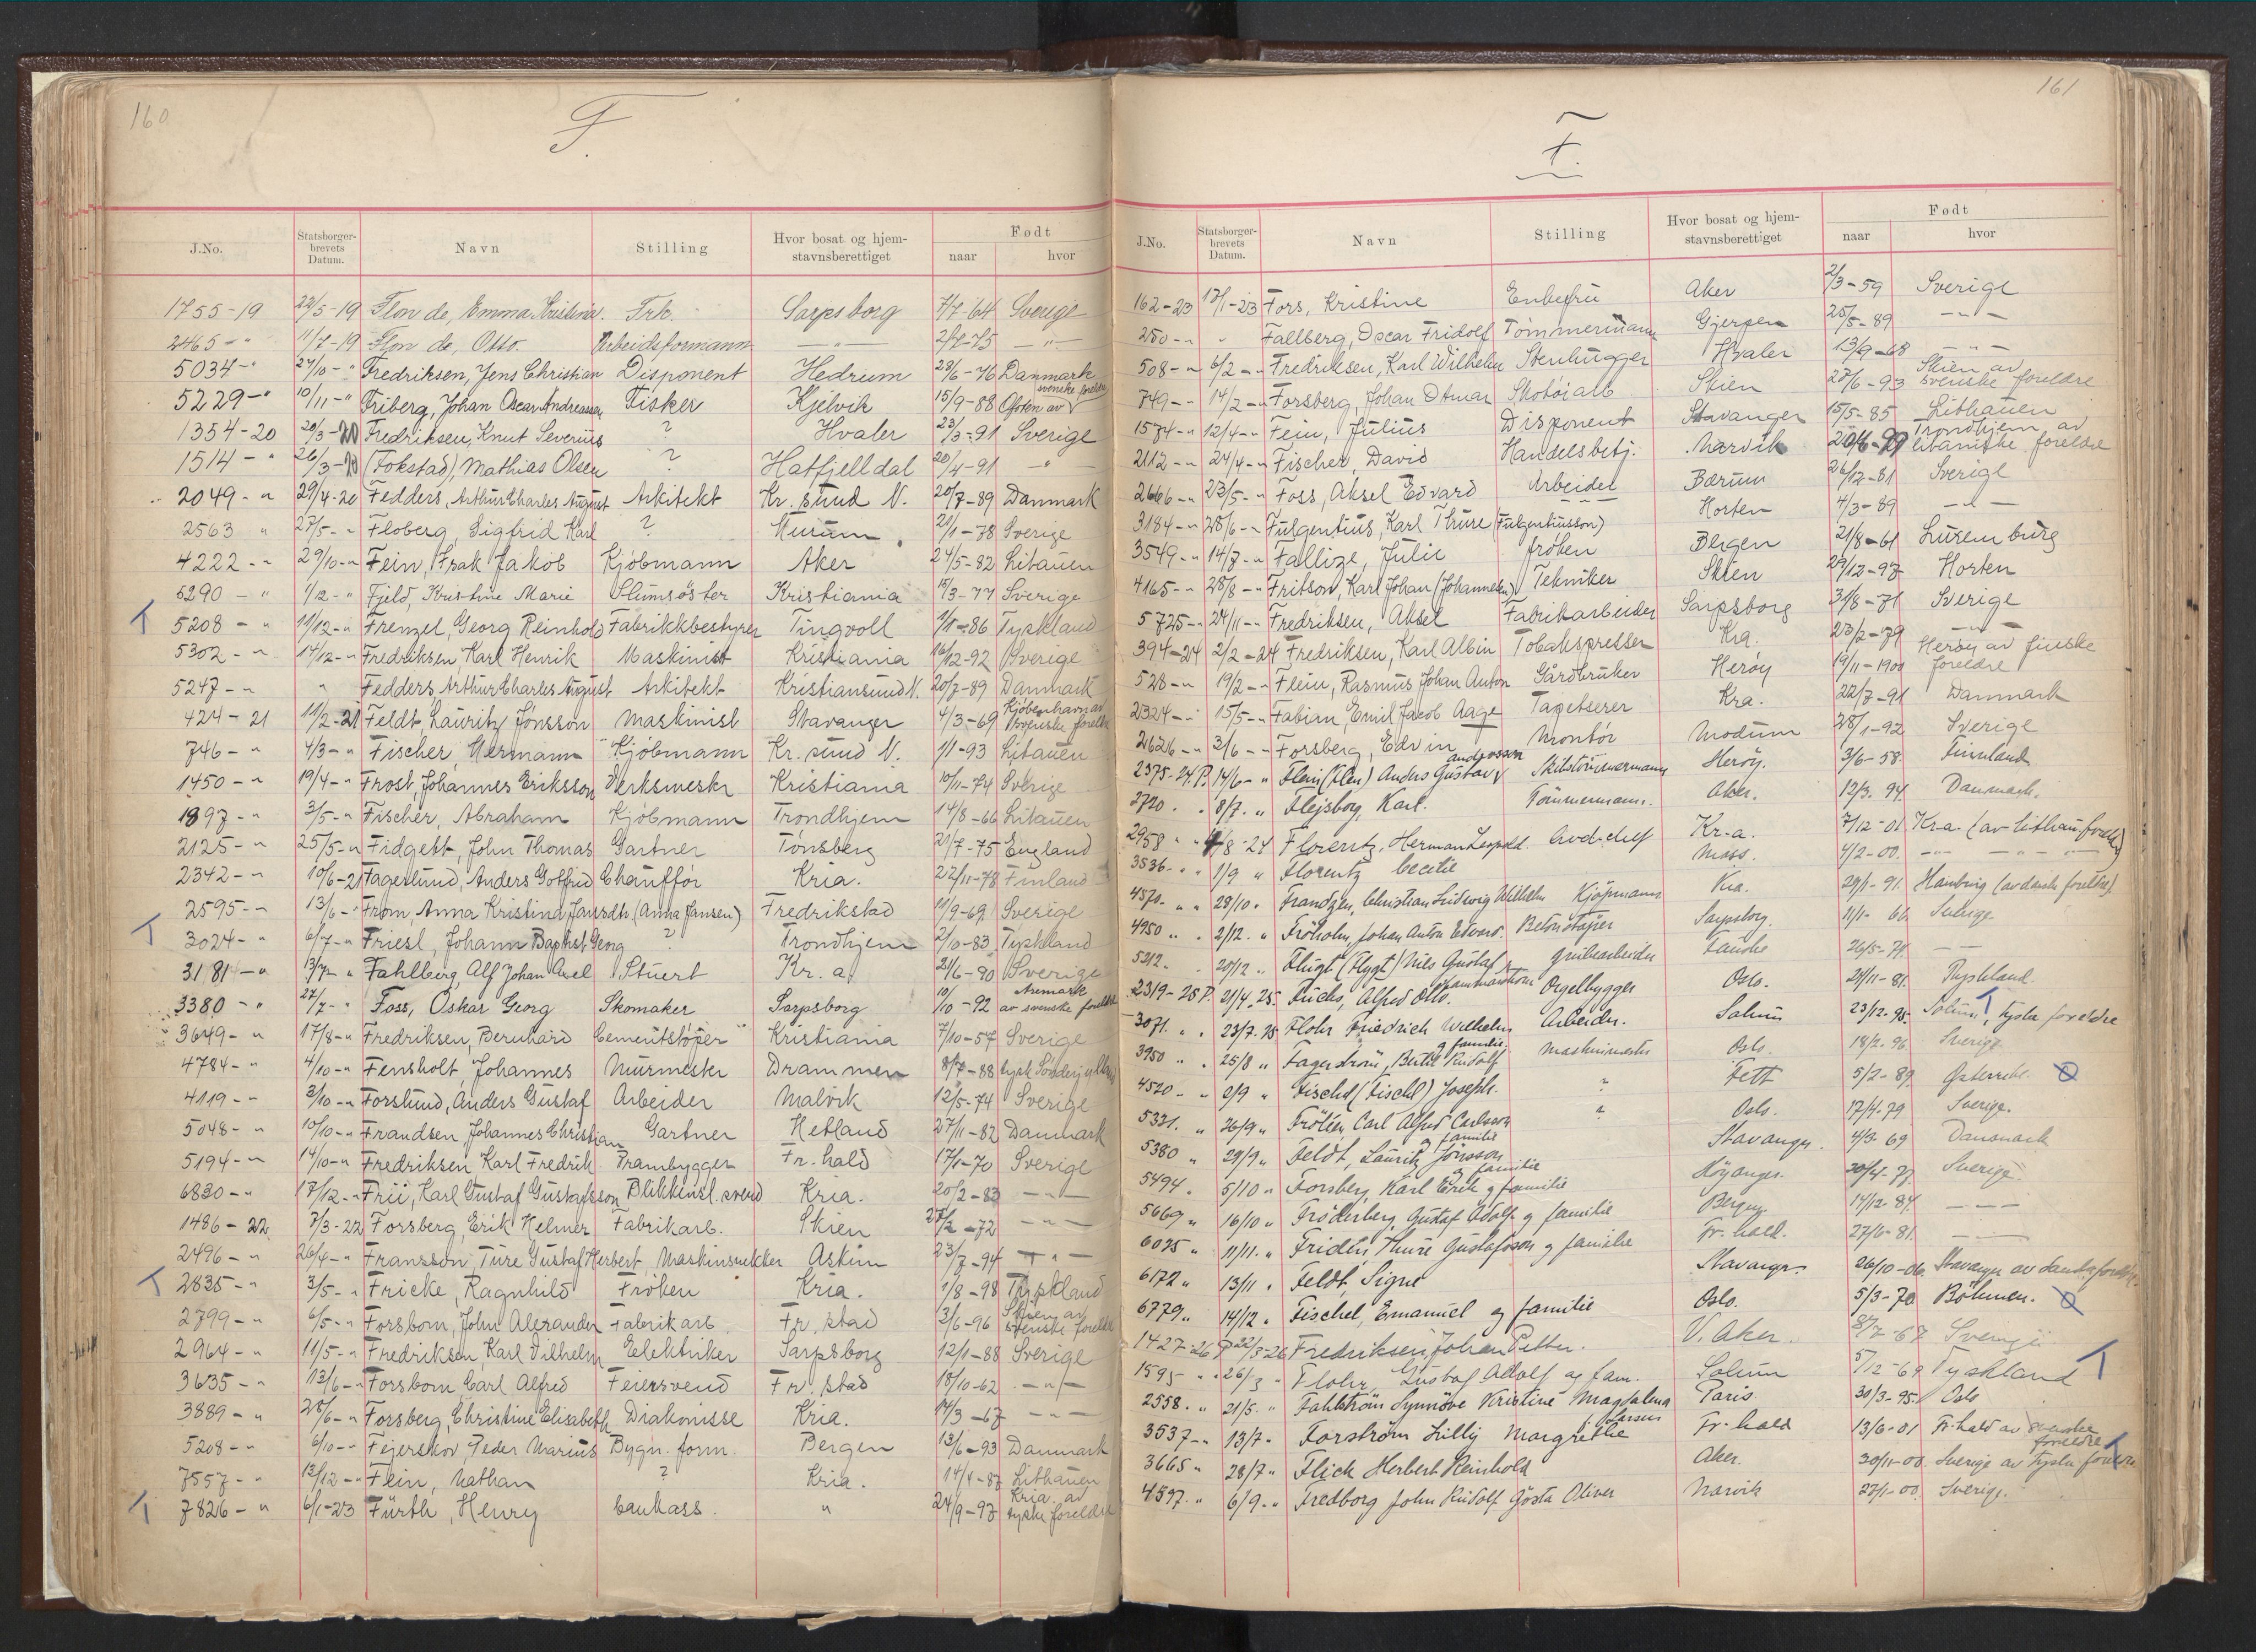 160
F.
J.No. Statsborgerbrevets Datum. Navn Stilling Hvor bosat og hjemstavnsberettiget Født naar hvor
1755-19 22/5-19 Flon de, Emma Kristina. Frk. Sarpsborg 7/7-64 Sverige
2465-" 11/7-19 Flon de, Otto. Arbeidsformann —"— —"—
5034-" 27/10-" Fredriksen, Jens Christian Disponent Hedrum 28/6-76 Danmark
5229-" 10/11-" Friberg, Johan Oscar Andreassen Fisker Kjelvik 15/9-88 Ofoten av svenske foreldre
1354-20 20/3-20 Fredriksen, Knut Severius ? Hvaler 23/3-91 Sverige
1514-" 26/3-20 (Fokstad), Mathias Olsen ? Hatfjelldal 20/4-91 —"—
2049-" 29/4-20 Fedders, Arthur Charles August Arkitekt Kr.sund N. 20/7-89 Danmark
2563 " 27/5-" Floberg, Sigfrid Karl ? Hurum 21/1-78 Sverige
4222-" 29/10-" Fein, Isak Jakob Kjøbmann Aker 24/5-82 Litauen
5290-" 1/12-" Fjeld, Kristine Marie Slumsøster Kristiania 15/3-77 Sverige
T 5208-" 11/12-" Frenzel, Georg Reinhold Fabrikkbestyrer Tingvoll 1/1-86 Tyskland
5302-" 14/12-" Fredriksen Karl Henrik Maskinist Kristiania 16/12-92 Sverige
5247-" " Fedders, Arthur Charles August Arkitekt Kristiansund N. 20/7-89 Danmark
424-21 11/2-21 Feldt, Lauritz Jönsson Maskinist Stavanger 4/3-69 Kjøbenhavn av svenske foreldre
746-" 4/3-" Fischer, Hermann Kjøbmann Kr.sund N. 1/1-93 Litauen
1450-" 19/4-" Frost, Johannes Eriksson Verksmester Kristiania 10/11-74 Sverige
1897-" 3/5-" Fischer, Abraham Kjøbmann Trondhjem 14/8-66 Litauen
2125-" 25/5-" Fidgett, John Thomas Gartner Tønsberg 21/7-75 England
2342-" 10/6-21 Fagerlund, Anders Gotfrid Chauffør Kria. 22/11-78 Finland
2595-" 13/6-" From, Anna Kristina Jansdtr (Anna Jansen) Fredrikstad 11/9-69 Sverige
T 3024-" 6/7-" Friesl, Johann Baptist Georg ? Trondhjem 2/10-83 Tyskland
3181-" 13/7-" Fahlberg, Alf Johan Axel Stuert Kr.a. 21/6-90 Sverige
3380-" 27/7-" Foss, Oskar Georg Skomaker Sarpsborg 10/10-92 Aremark av svenske foreldre
3649-" 17/8-" Fredriksen, Bernhard Cementstøper Kristiania 7/10-57 Sverige
4784-" 4/10-" Fensholt, Johannes Murmester Drammen 8/7-88 tysk Sønderjylland
4119-" 3/10-" Forslund, Anders Gustaf Arbeider Malvik 12/5-74 Sverige
5048-" 10/10-" Frandsen, Johannes Christian Gartner Hetland 27/11-82 Danmark
5194-" 14/10-" Fredriksen Karl Fredrik Prambygger Fr.hald 17/1-70 Sverige
6830-" 17/12-" Frii, Karl Gustaf Gustafsson Blikkensl.svend Kria. 20/2-83 —"—
1486-22 7/3-22 Forsberg, Erik Helmer Fabrikarb. Skien 25/2-72 —"—
2496-" 26/4-" Fransson, Ture Gustaf Herbert Maskinsnekker Askim 23/7-94 —"—
T 2835-" 3/5-" Fricke, Ragnhild Frøken Kria. 1/8-98 Tyskland
2799-" 6/5-" Forsbom, John Alexander Fabrikarb. Fr.stad 3/6-96 Skien av svenske foreldre
2964-" 11/5-" Fredriksen, Karl Vilhelm Elektriker Sarpsborg 12/1-88 Sverige
3635-" 13/6-" Forsbom, Carl Alfred Feiersvend Fr.stad 18/10-62 —"—
3889-" 28/6-" Forsberg, Christine Elisabeth Diakonisse Kria. 14/3-67 —"—
5208-" 6/10-" Fejerskov, Peder Marius Bygn.form. Bergen 13/6-93 Danmark
7557-" 12/12-" Fein, Nathan ? Kria. 14/4-87 Lithauen
T 7826-" 6/1-23 Fürth, Henry " 24/9-97 Kria av tyske foreldre
161
F.
J.No. Statsborgerbrevets Datum. Navn Stilling Hvor bosat og hjemstavnsberettiget Født naar hvor
162-23 13/1-23 Fors, Kristine Enkefru Aker 2/3-59 Sverige
250-" " Fallberg, Oscar Fridolf Tømmermann Gjerpen 25/5-89 —"—
508-" 6/2-" Fredriksen, Karl Wilhelm Stenhugger Hvaler 13/9-68 —"—
749-" 14/2-" Forsberg, Johan Otmar Skotøjarb Skien 28/6-93 Skien av svenske foreldre
1574-" 12/4-" Fein, Julius Disponent Stavanger 15/5-85 Lithauen
2112-" 24/4-" Fischer, David Handelsbetj. Narvik Trondhjem av litauiske foreldre
2666-" 23/5-" Foss, Aksel Edvard Arbeider Bærum 26/12-81 Sverige
3184-" 28/6-" Fulgentius, Karl Thure (Fulgentiusson) Horten 4/3-89 —"—
3549-" 14/7-" Fallize, Julie frøken Bergen 21/8-61 Luxemburg
4165-" 28/8-" Fritson, Karl Johan (Johannesen) Tekniker Skien 29/12-97 Horten
5725-" 24/11-" Fredriksen, Aksel Fabrikarbeider Sarpsborg 31/8-71 Sverige
394-24 2/2-24 Fredriksen, Karl Albin Tobakspresser Kra. 23/2-79 —"—
528-" 19/2-" Flein, Rasmus Johan Anton Gårdbruker Herøy 19/11-1900 Herøy av finske foreldre
2324-" 15/5-" Fabian, Emil Jacob Aage Tapetserer Kra. 22/7-91 Danmark
2626-" 3/6-" Forsberg, Edvin Montør Modum 28/1-92 Sverige
2375-24 P. 14/6-" Flein (Flen) Anders Gustav Andersson Skibstømmermann Herøy. 3/6-58 Finnland
2720. . 8/7. " Flejsborg, Karl. Tømmermann. Aker. 12/3. 94. Danmark.
2958 " " 4/8-24 Florentz, Herman Leopold. Avd.chef Kr-a. 7/12-01 Kra. (av lithau. foreldre)
3536. " . 1/9 " Florentz Cecilie Moss. 4/2-00. —"—
4570. " " 28/10. " Frandzen, Christian Ludwig Wilhelm Kjøpmann Kra. 29/1-91. Hamburg (av danske foreldre)
4950 " . 2/12. " Fröholm, Johan Anton Edvard. Betonstøper Sarpsborg. 11/1-66. Sverige
5212. . 20/12 " Flugt (Flygt) Nils Gustaf Grubearbeider Fauske 26/5-74. ——
2319-25 P. 21/4.25. Fuchs, Alfred Otto Orgelbygger Oslo. 24/11-81. Tyskland.
3071. " . 23/7.25 Flohr Friedrich Wilhelm Arbeider. Solum 23/12-95. Solum, tyske foreldre T
3950 " . 25/8 " Fagerström, Bertil Rudolf og familie. Maskinmester Oslo. 18/2.96. Sverige
4520. " . 2/9 " Fischl (Fischl) Joseph. ? Fett 5/2-89. Østerrike.
5331. " 26/9 " Frölén, Carl Alfred Carlsson og familie ? Oslo. 17/4.79 Sverige.
5380 " 29/9 " Feldt, Lauritz Jönsson og familie Stavanger. 4/3-69 Danmark
5494. " 5/10 " Forsberg, Karl Erik og familie Høyanger. Sverige.
5669 " 16/10 " Fröderberg, Gustaf Adolf og familie Bergen 14/12-84. ———
6025 " 11/11. " Fridén, Thure Gustafsson og familie Fr.hald. 27/6-81. ———
6172 " 13/11 . Feldt, Signe Stavanger. 26/10-06. Stavanger av danske foreldre.
6779 " 14/12 " Fischel, Emanuel og familie Oslo. 5/3-70 Böhmen.
1427-26 P 22/3-26 Fredriksen, Johan Petter. V. Aker. 8/7-67 Sverige
1595 " " 26/3 " Flohr, Gustav Adolf og fam. Solum 5/12-69 Tyskland T
2558. " 21/5. " Fahlström Synnöve Kristine Magdalena Paris 30/3-95. Oslo
3537-" 13/7- Forström Lilly Margrethe Larsen Fr.hald 13/6-01 Fr.hald av svenske foreldre
3665 " 28/7 " Flick Herbert Reinhold Aker. 30/11-00. Sverige av tyske foreldre T
4597. " 6/9. " Fredborg John Rudolf Gösta Oliver Narvik 27/1-00. Sverige.